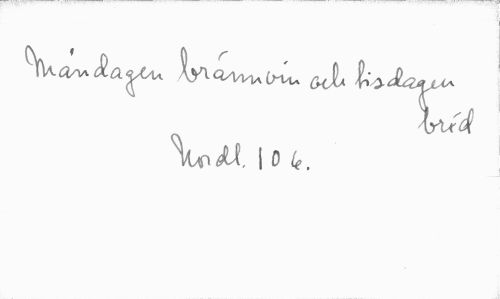 Måndagen brännvin och tisdagen
bröd
Nordl. 106.